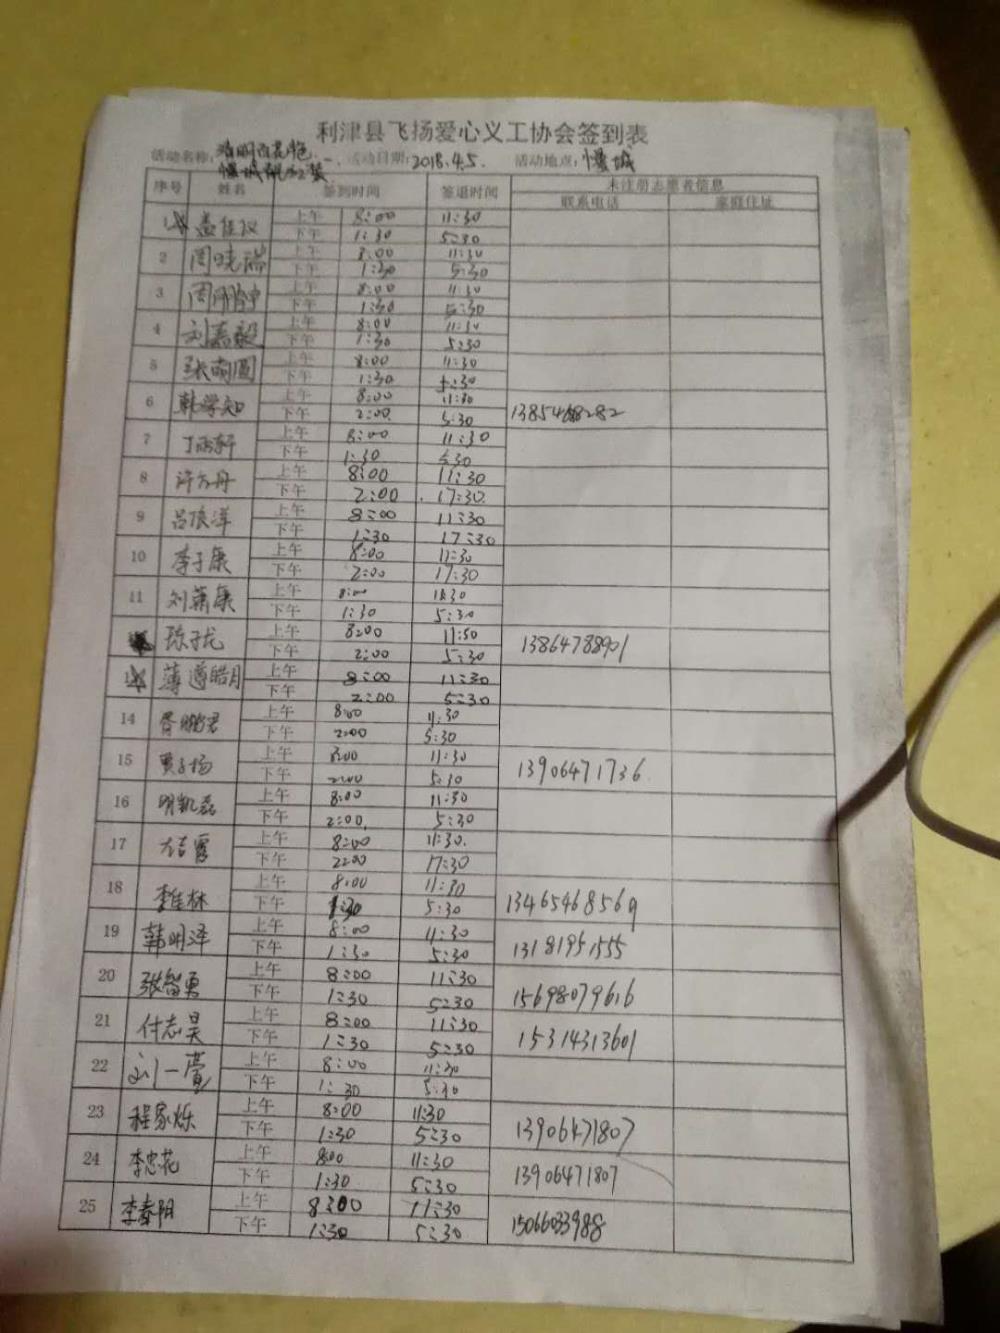 利津县飞扬爱心义工协会签到表
活动名称: 活动日期: 2018.4.5. 活动地点: 慢城
慢城
序号 姓名 签到时间 签退时间 未注册志愿者信息
联系电话 家庭住址
上午 8:00 11:30
下午 1:30 5:30
2 周晓瑞 上午 8:00 11:30
下午 1:30 5:30
3 周 上午 8:00 11:30
下午 1:30 5:30
4 刘嘉毅 上午 8:00 11:30
下午 1:30 5:30
5 张萌圆 上午 8:00 11:30
下午 1:30 5:30
6 韩学知 上午 8:00 11:30
下午 2:00 5:30
7 上午 8:00 11:30
下午 1:30 5:30
8 许方丹 上午 8:00 11:30
下午 2:00 17:30
9 吕浪洋 上午 8:00 11:30
下午 1:30 17:30
10 李子康 上午 8:00 11:30
下午 2:00 17:30
11 刘萧康 上午 8:00 11:30
下午 1:30 5:30
上午 8:00 11:30 13864788901
下午 2:00 5:30
薄遵皓月 上午 8:00 11:30
下午 2:00 5:30
14 上午 8:00 11:30
下午 2:00 5:30
15 贾子扬 上午 8:00 11:30 13906471736
下午 2:00 5:30
16 明凯磊 上午 8:00 11:30
下午 2:00 5:30
17 上午 8:00 11:30
下午 2:00 17:30
18 李佳林 上午 8:00 11:30
下午 1:30 5:30 13465468569
19 韩明泽 上午 8:00 11:30
下午 1:30 5:30 13181951555
20 张智勇 上午 8:00 11:30
下午 1:30 5:30 15698079616
21 付志昊 上午 8:00 11:30
下午 1:30 5:30 15314313601
22 刘一萱 上午 8:00 11:30
下午 1:30 5:30
23 程家烁 上午 8:00 11:30
下午 1:30 5:30 13906471807
24 李忠花 上午 8:00 11:30
下午 1:30 5:30 13906471807
25 李春阳 上午 8:00 11:30
下午 1:30 5:30 15066033988